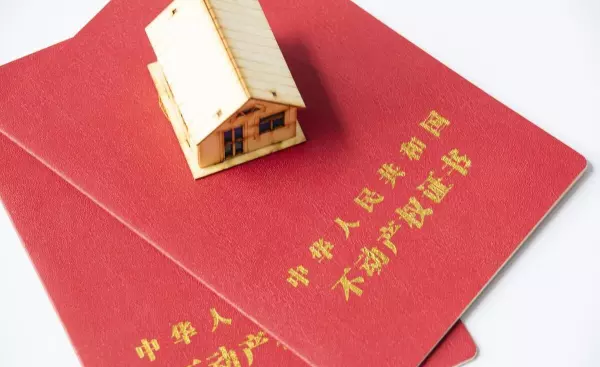 中华人民共和国
不动产权证书
中华人
不动产